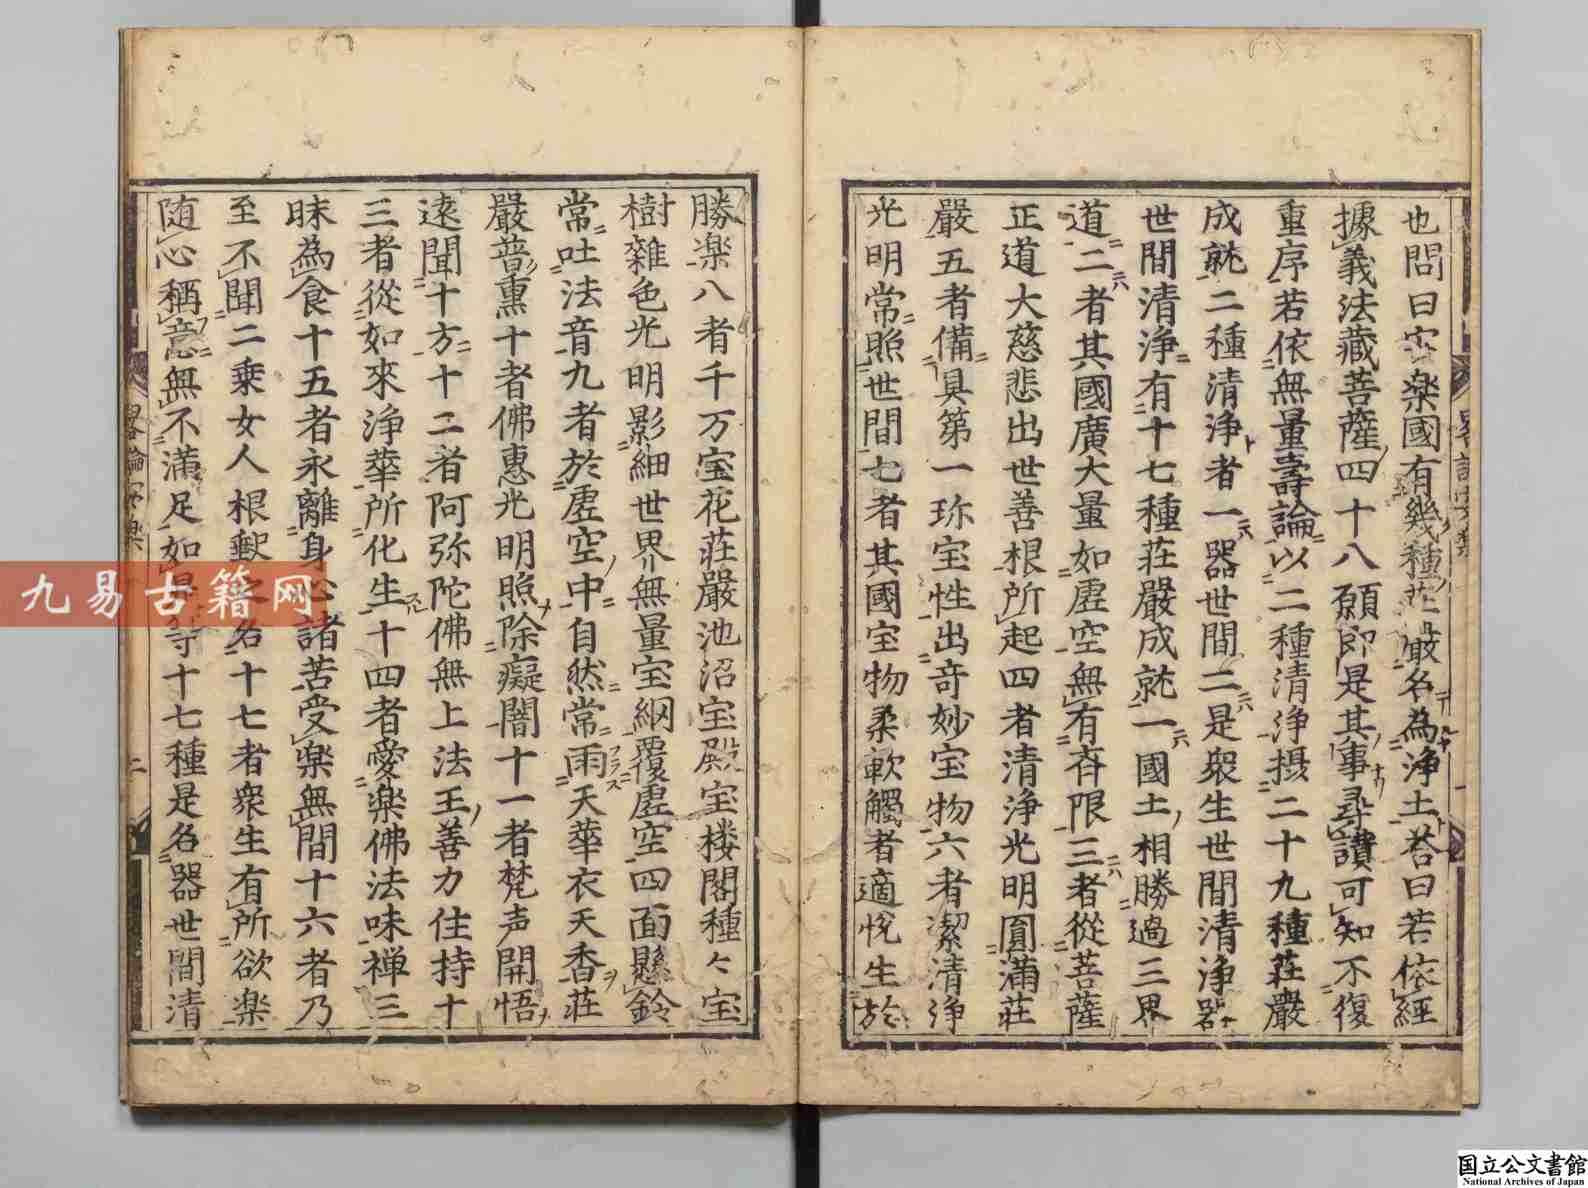 也問曰安楽國有幾種荘嚴名為浄土荅曰若依經
據義法藏菩薩四十八願即是其事尋讃可知不復
重序若依無量壽論以二種清浄摂二十九種荘嚴
成就二種清浄者一器世間二是衆生世間清浄器
世間清浄有十七種荘嚴成就一國土相勝過三界
道二者其國廣大量如虚空無有斉限三者從菩薩
正道大慈悲出世善根所起四者清浄光明圓滿荘
嚴五者備具第一珎宝性出奇妙宝物六者潔清浄
光明常照世間七者其國宝物柔軟觸者適悅生於
勝楽八者千万宝花荘嚴池沼宝殿宝楼閣種々宝
樹雜色光明影細世界無量宝網覆虚空四面懸鈴
常吐法音九者於虚空中自然常雨天華衣天香荘
嚴普熏十者佛惠光明照除癡闇十一者梵声開悟
遠聞十方十二者阿弥陀佛無上法王善力住持十
三者從如來浄華所化生十四者愛楽佛法味禅三
昧為食十五者永離身心諸苦受楽無間十六者乃
至不聞二乗女人根䡖之名十七者衆生有所欲楽
随心稱意無不滿足如是等十七種是名器世間清
畧論安楽
二
九易古籍网
国立公文書館
National Archives of Japan